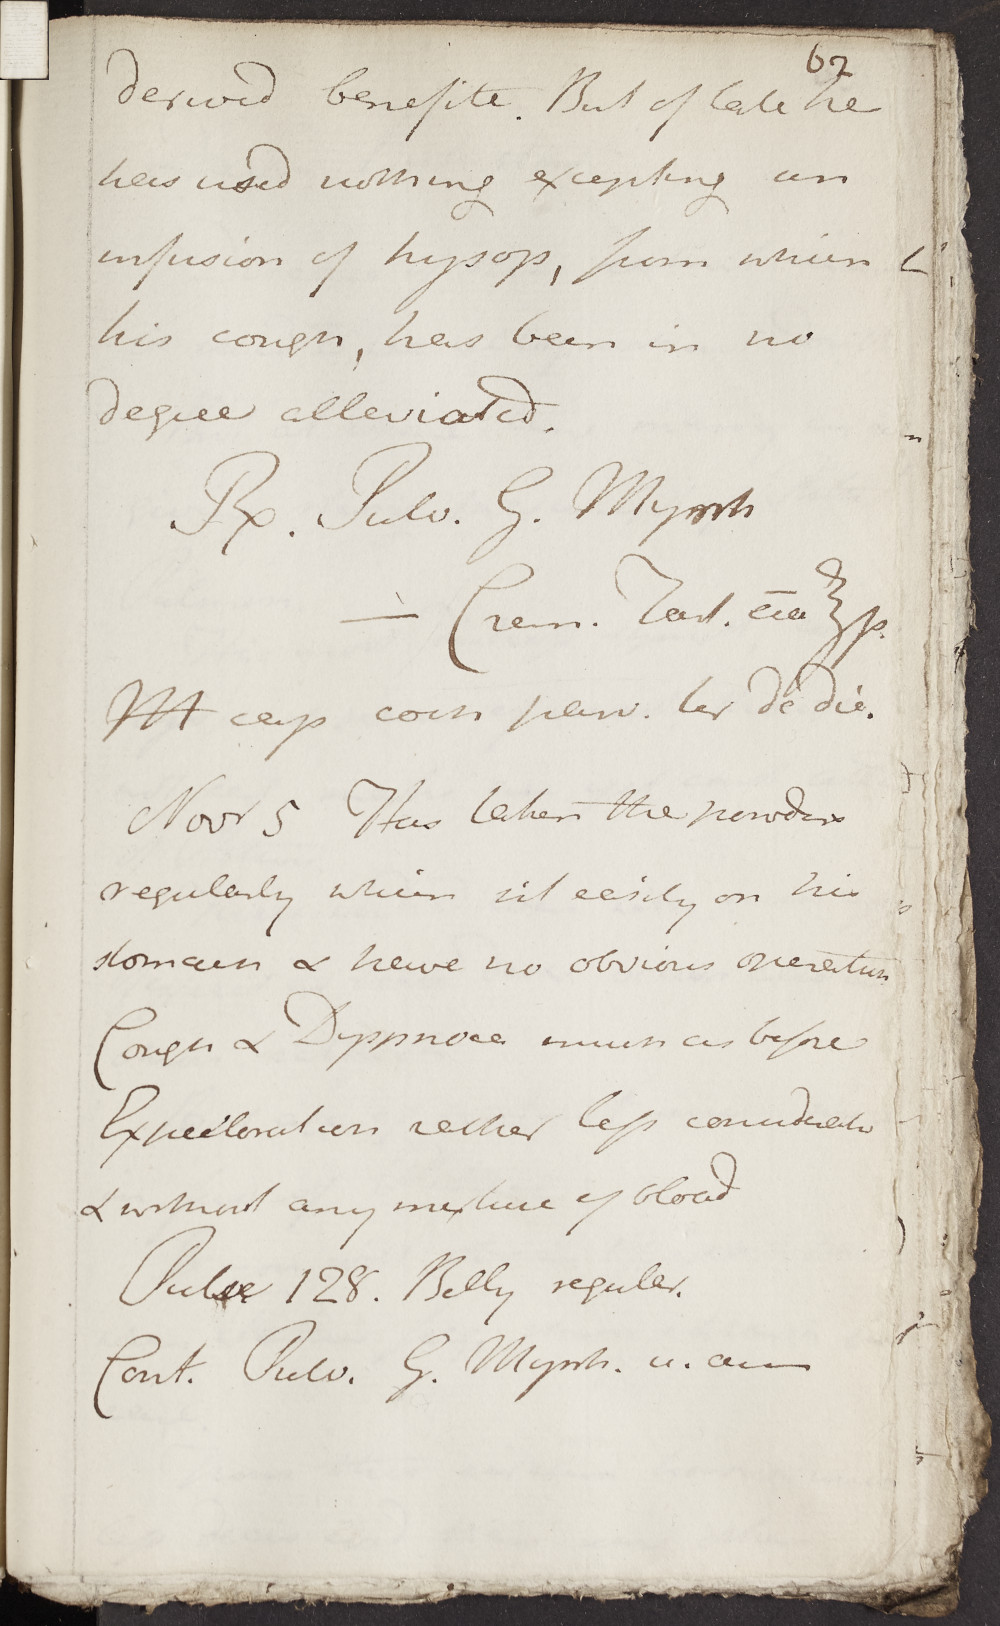 62
derived benefite. But of late he
has used nothing excepting an
infusion of hysop, from which
his cough, has been in no
degree alleviated.
Rx. Pulv. G. Myrrh
— Crem. Tart. āā ʒſs.
M cap coch parv. ter de die.
Novr 5 Has taken the powders
regularly which sit easily on his
stomach & have no obvious operation
Cough & Dyspnoea much as before
Expectoration rather leſs considerable
& without any mixture of blood
Pulse 128. Belly regular.
Cont. Pulv. G. Myrrh. u. a